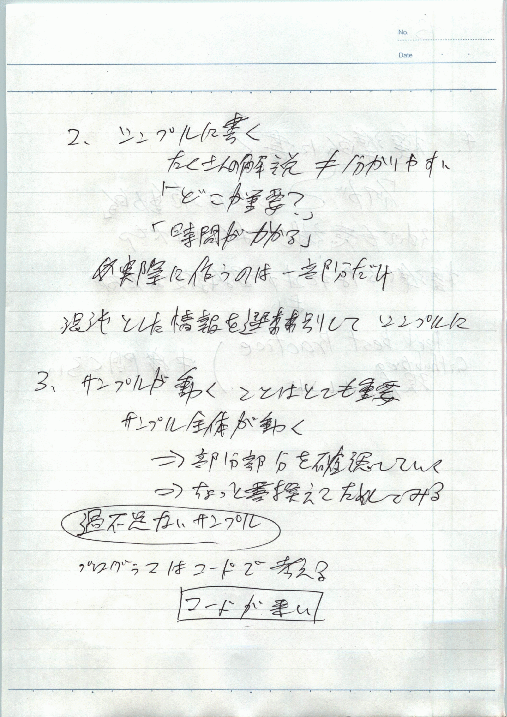 No.
Date
2、シンプルに書く
たくさんの解説 ≠ 分かりやすい
「どこが重要?」
「時間がかかる」
実際に使うのは一部分だけ
混沌とした情報を選別してシンプルに
3、サンプルが動くことはとても重要
サンプル全体が動く
⇒ 部分部分を確認していく
⇒ ちょっと書換えてためしてみる
過不足ないサンプル
プログラマはコードで考える
コードが